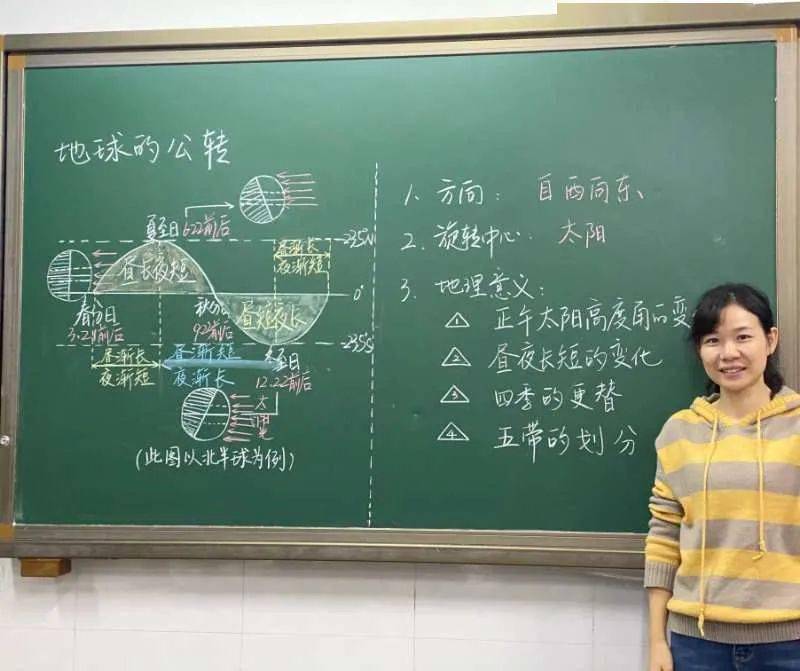 地球的公转
夏至日 6.22前后
23.5°N
昼渐长
夜渐短
昼长夜短
0°
春分日
3.21前后
秋分日
9.2前后
昼短夜长
23.5°S
昼渐长
夜渐短
昼渐短
夜渐长
冬至日
12.22前后
太阳光
(此图以北半球为例)
1. 方向: 自西向东
2. 旋转中心: 太阳
3. 地理意义:
1 正午太阳高度角的变
2 昼夜长短的变化
3 四季的更替
4 五带的划分